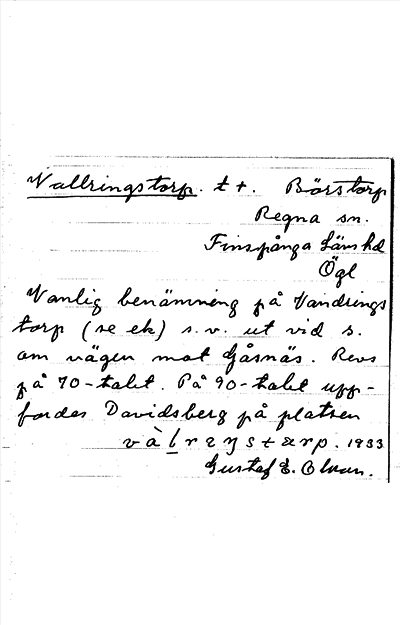 Wallringstorp. t +. Börstorp
Regna sn.
Finspånga Läns hd
Ögl
Vanlig benämning på Vandrings
torp (se ek) s.v. ut vid s.
om vägen mot Gåsnäs. Revs
på 70-talet. På 90-talet upp-
fördes Davidsberg på platsen
1933
Gustaf E. Olson.